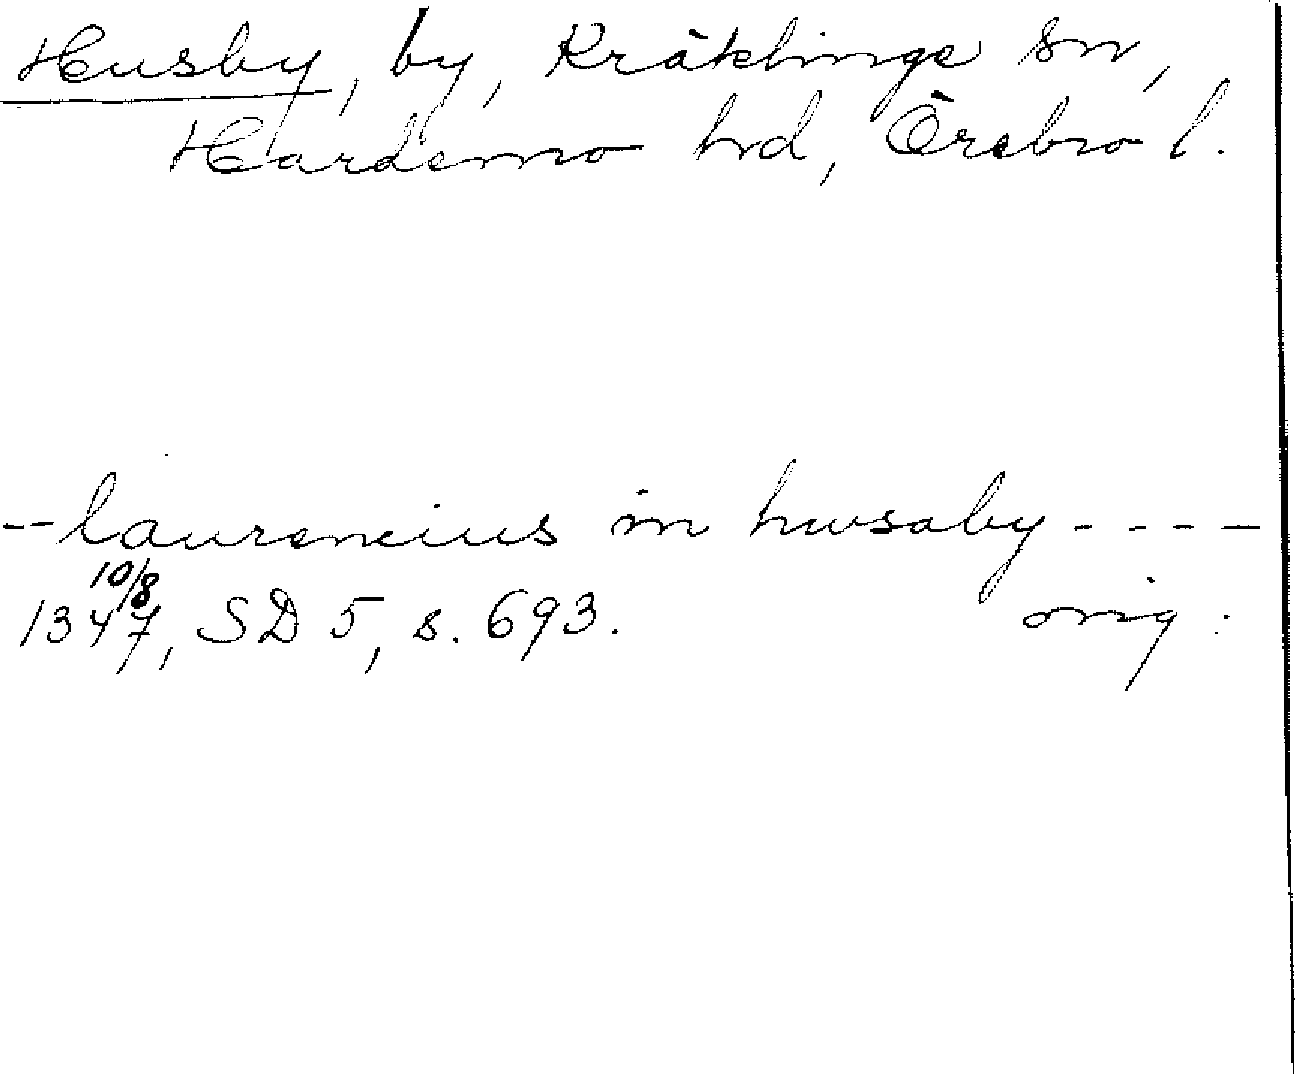 Husby, by, Kräklinge sn,
Hardemo hd, Örebro l.
-- laurencius in husaby ----
10/8
1347, SD 5, s. 693. orig.